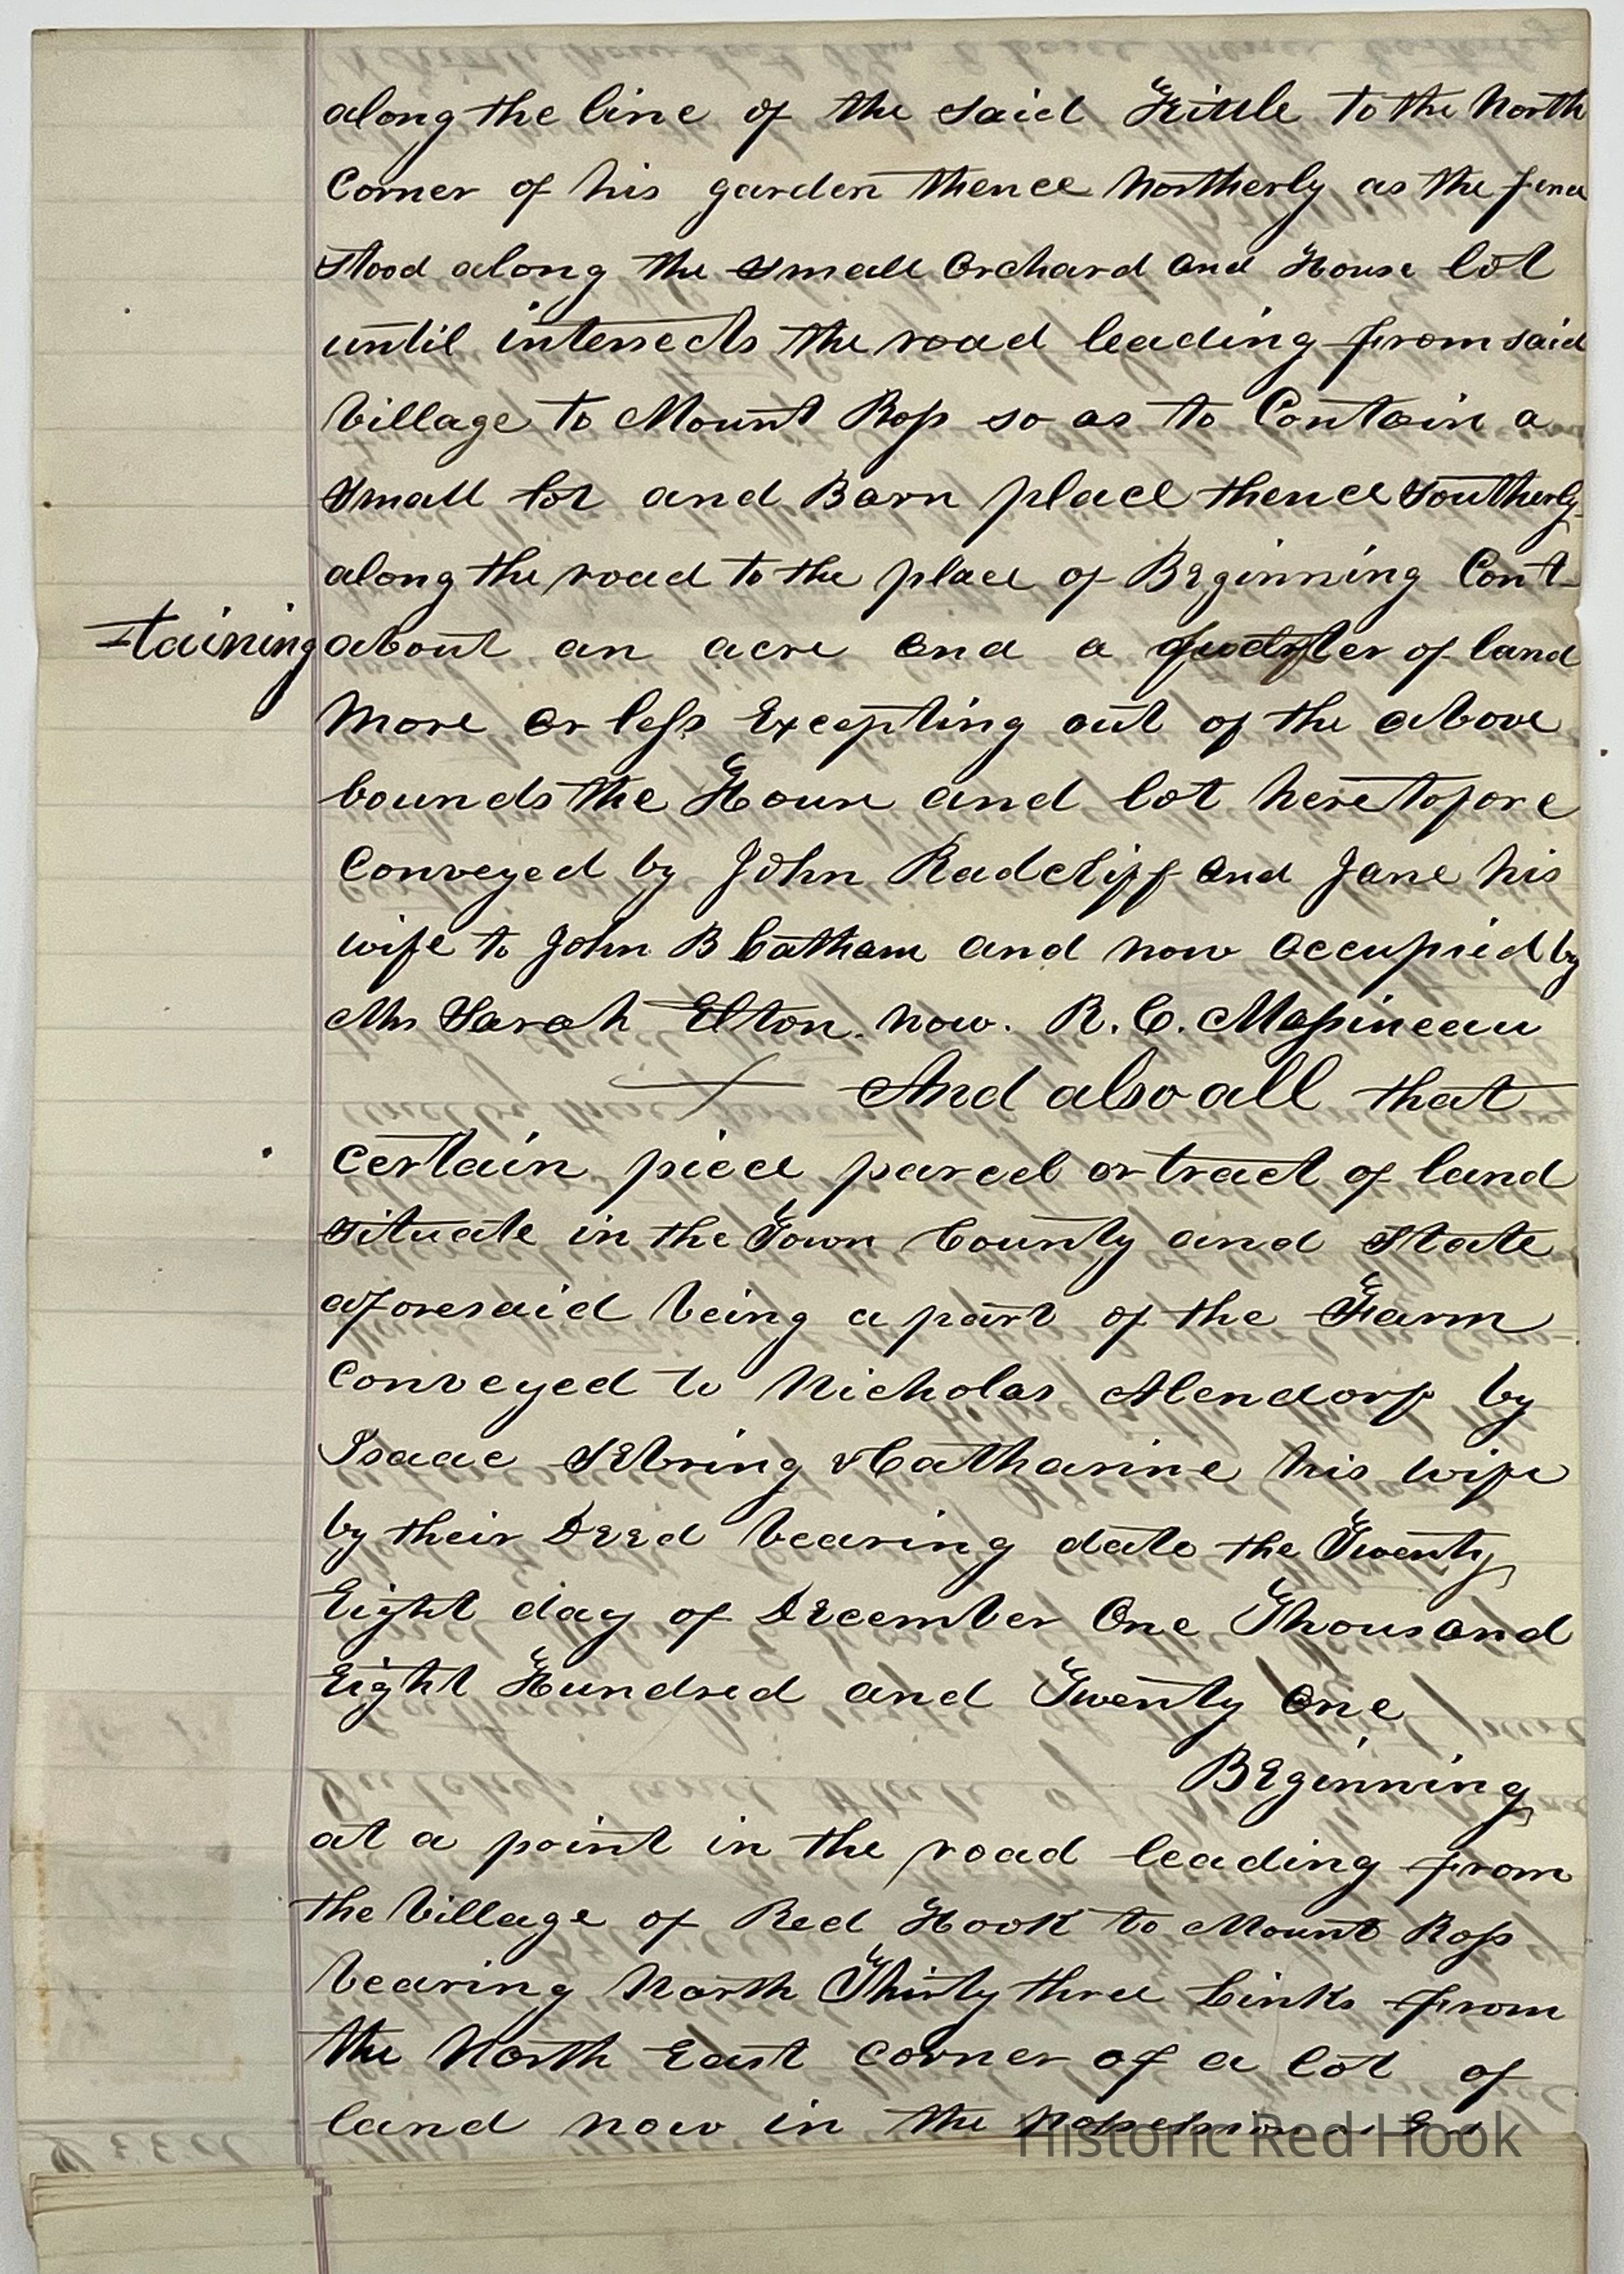 along the line of the said Fitile to the North
Corner of his garden thence Northerly as the fence
Stood along the Small Orchard and House lot
until intersects the road leading from said
Village to Mount Ross so as to Contain a
Small lot and Barn place thence Southerly
along the road to the place of Beginning Cont-
-taining about an acre and a quarter of land
More or less Excepting out of the above
bounds the House and lot heretofore
Conveyed by John Radcliff and Jane his
wife to John B Latham and now Occupied by
Mrs Sarah Elton. now. R. C. Massineau
And also all that
certain piece parcel or tract of land
situate in the Town County and State
aforesaid being a part of the Farm
Conveyed to Nicholas Alendorf by
Isaac Sebring & Catharine his wife
by their Deed bearing date the Twenty
Eight day of December One Thousand
Eight Hundred and Twenty One
Beginning
at a point in the road leading from
the Village of Red Hook to Mount Ross
bearing North Thirty three Links from
the North East corner of a lot of
land now in the
Historic Red Hook